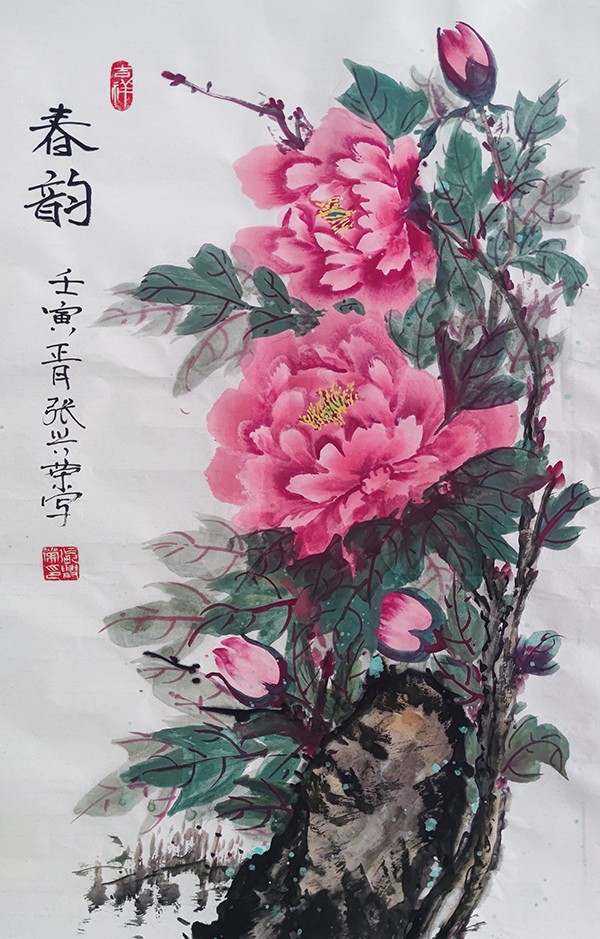 吉祥
春韵
壬寅正月张兴荣写